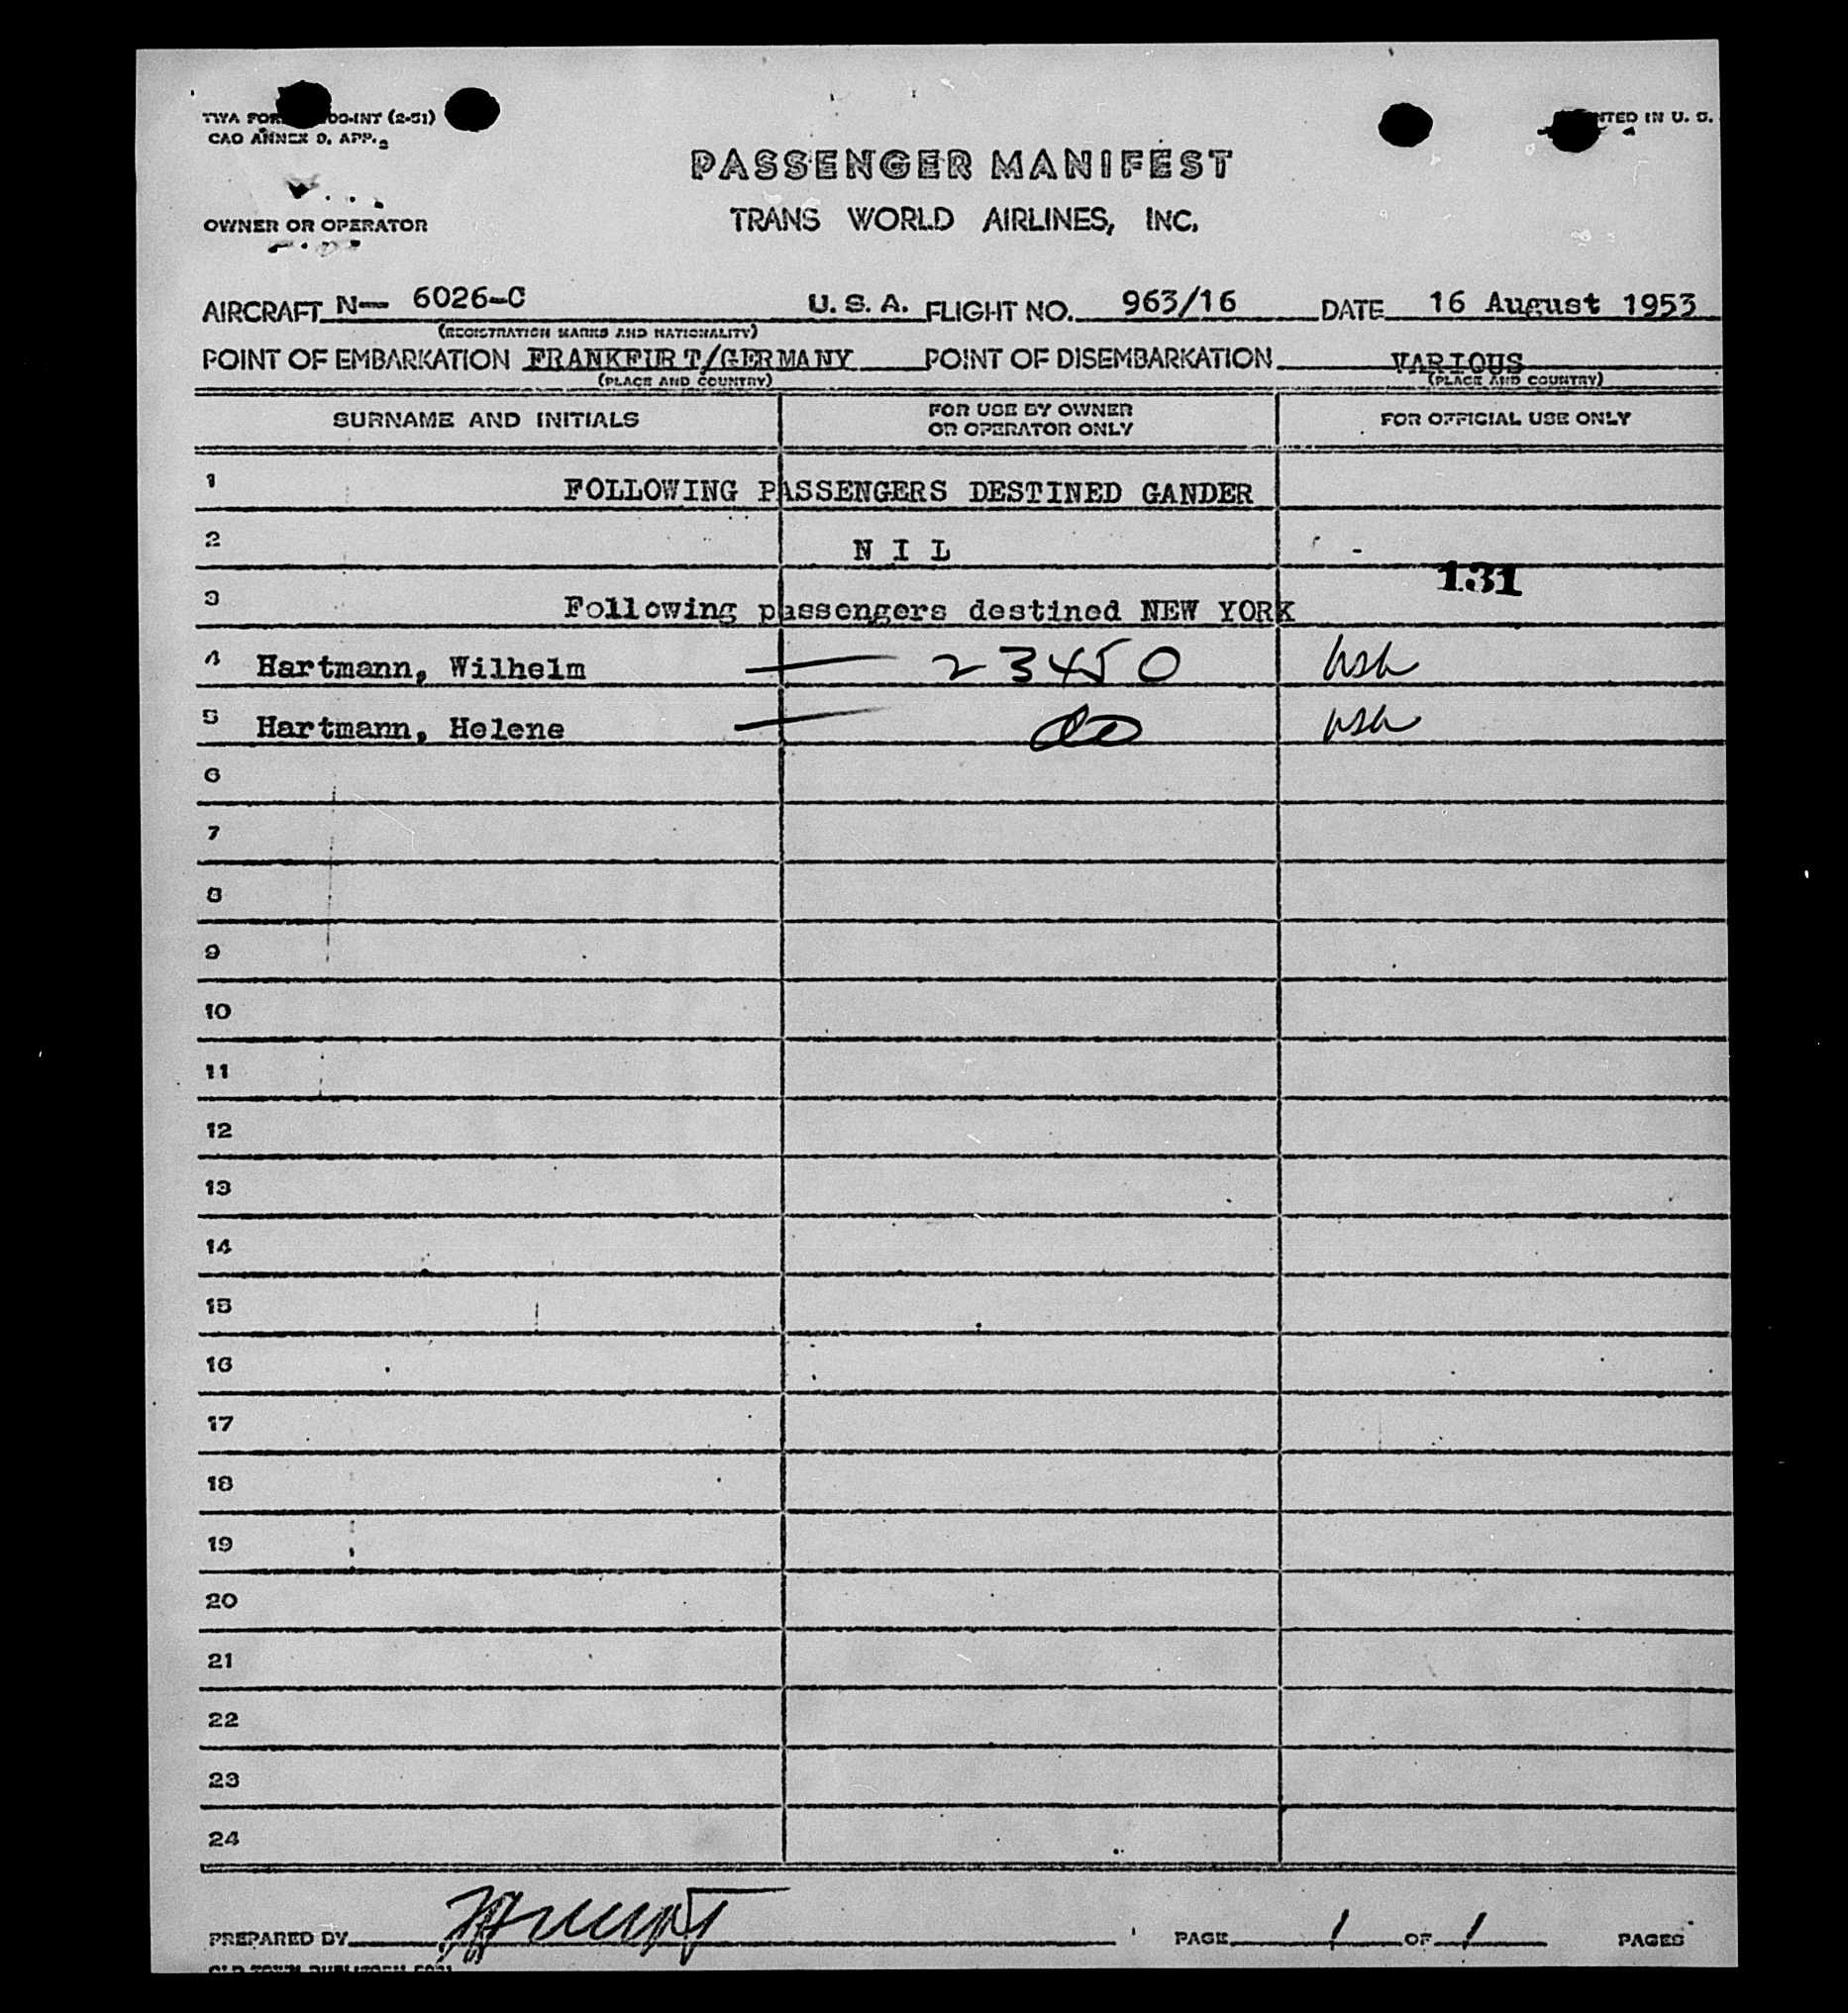 TWA FOR 00-INT (2-51)
CAO ANNEX 9, APP.
NTED IN U. S.
PASSENGER MANIFEST
TRANS WORLD AIRLINES, INC.
OWNER OR OPERATOR
AIRCRAFT N— 6026-C U. S. A. FLIGHT NO. 963/16 DATE 16 August 1953
(REGISTRATION MARKS AND NATIONALITY)
POINT OF EMBARKATION FRANKFURT/GERMANY POINT OF DISEMBARKATION VARIOUS
(PLACE AND COUNTRY) (PLACE AND COUNTRY)
SURNAME AND INITIALS FOR USE BY OWNER OR OPERATOR ONLY FOR OFFICIAL USE ONLY
1 FOLLOWING PASSENGERS DESTINED GANDER
2 N I L
131
3 Following passengers destined NEW YORK
4 Hartmann, Wilhelm — 23450 usa
5 Hartmann, Helene — do usa
6
7
8
9
10
11
12
13
14
15
16
17
18
19
20
21
22
23
24
PREPARED BY PAGE 1 OF 1 PAGES